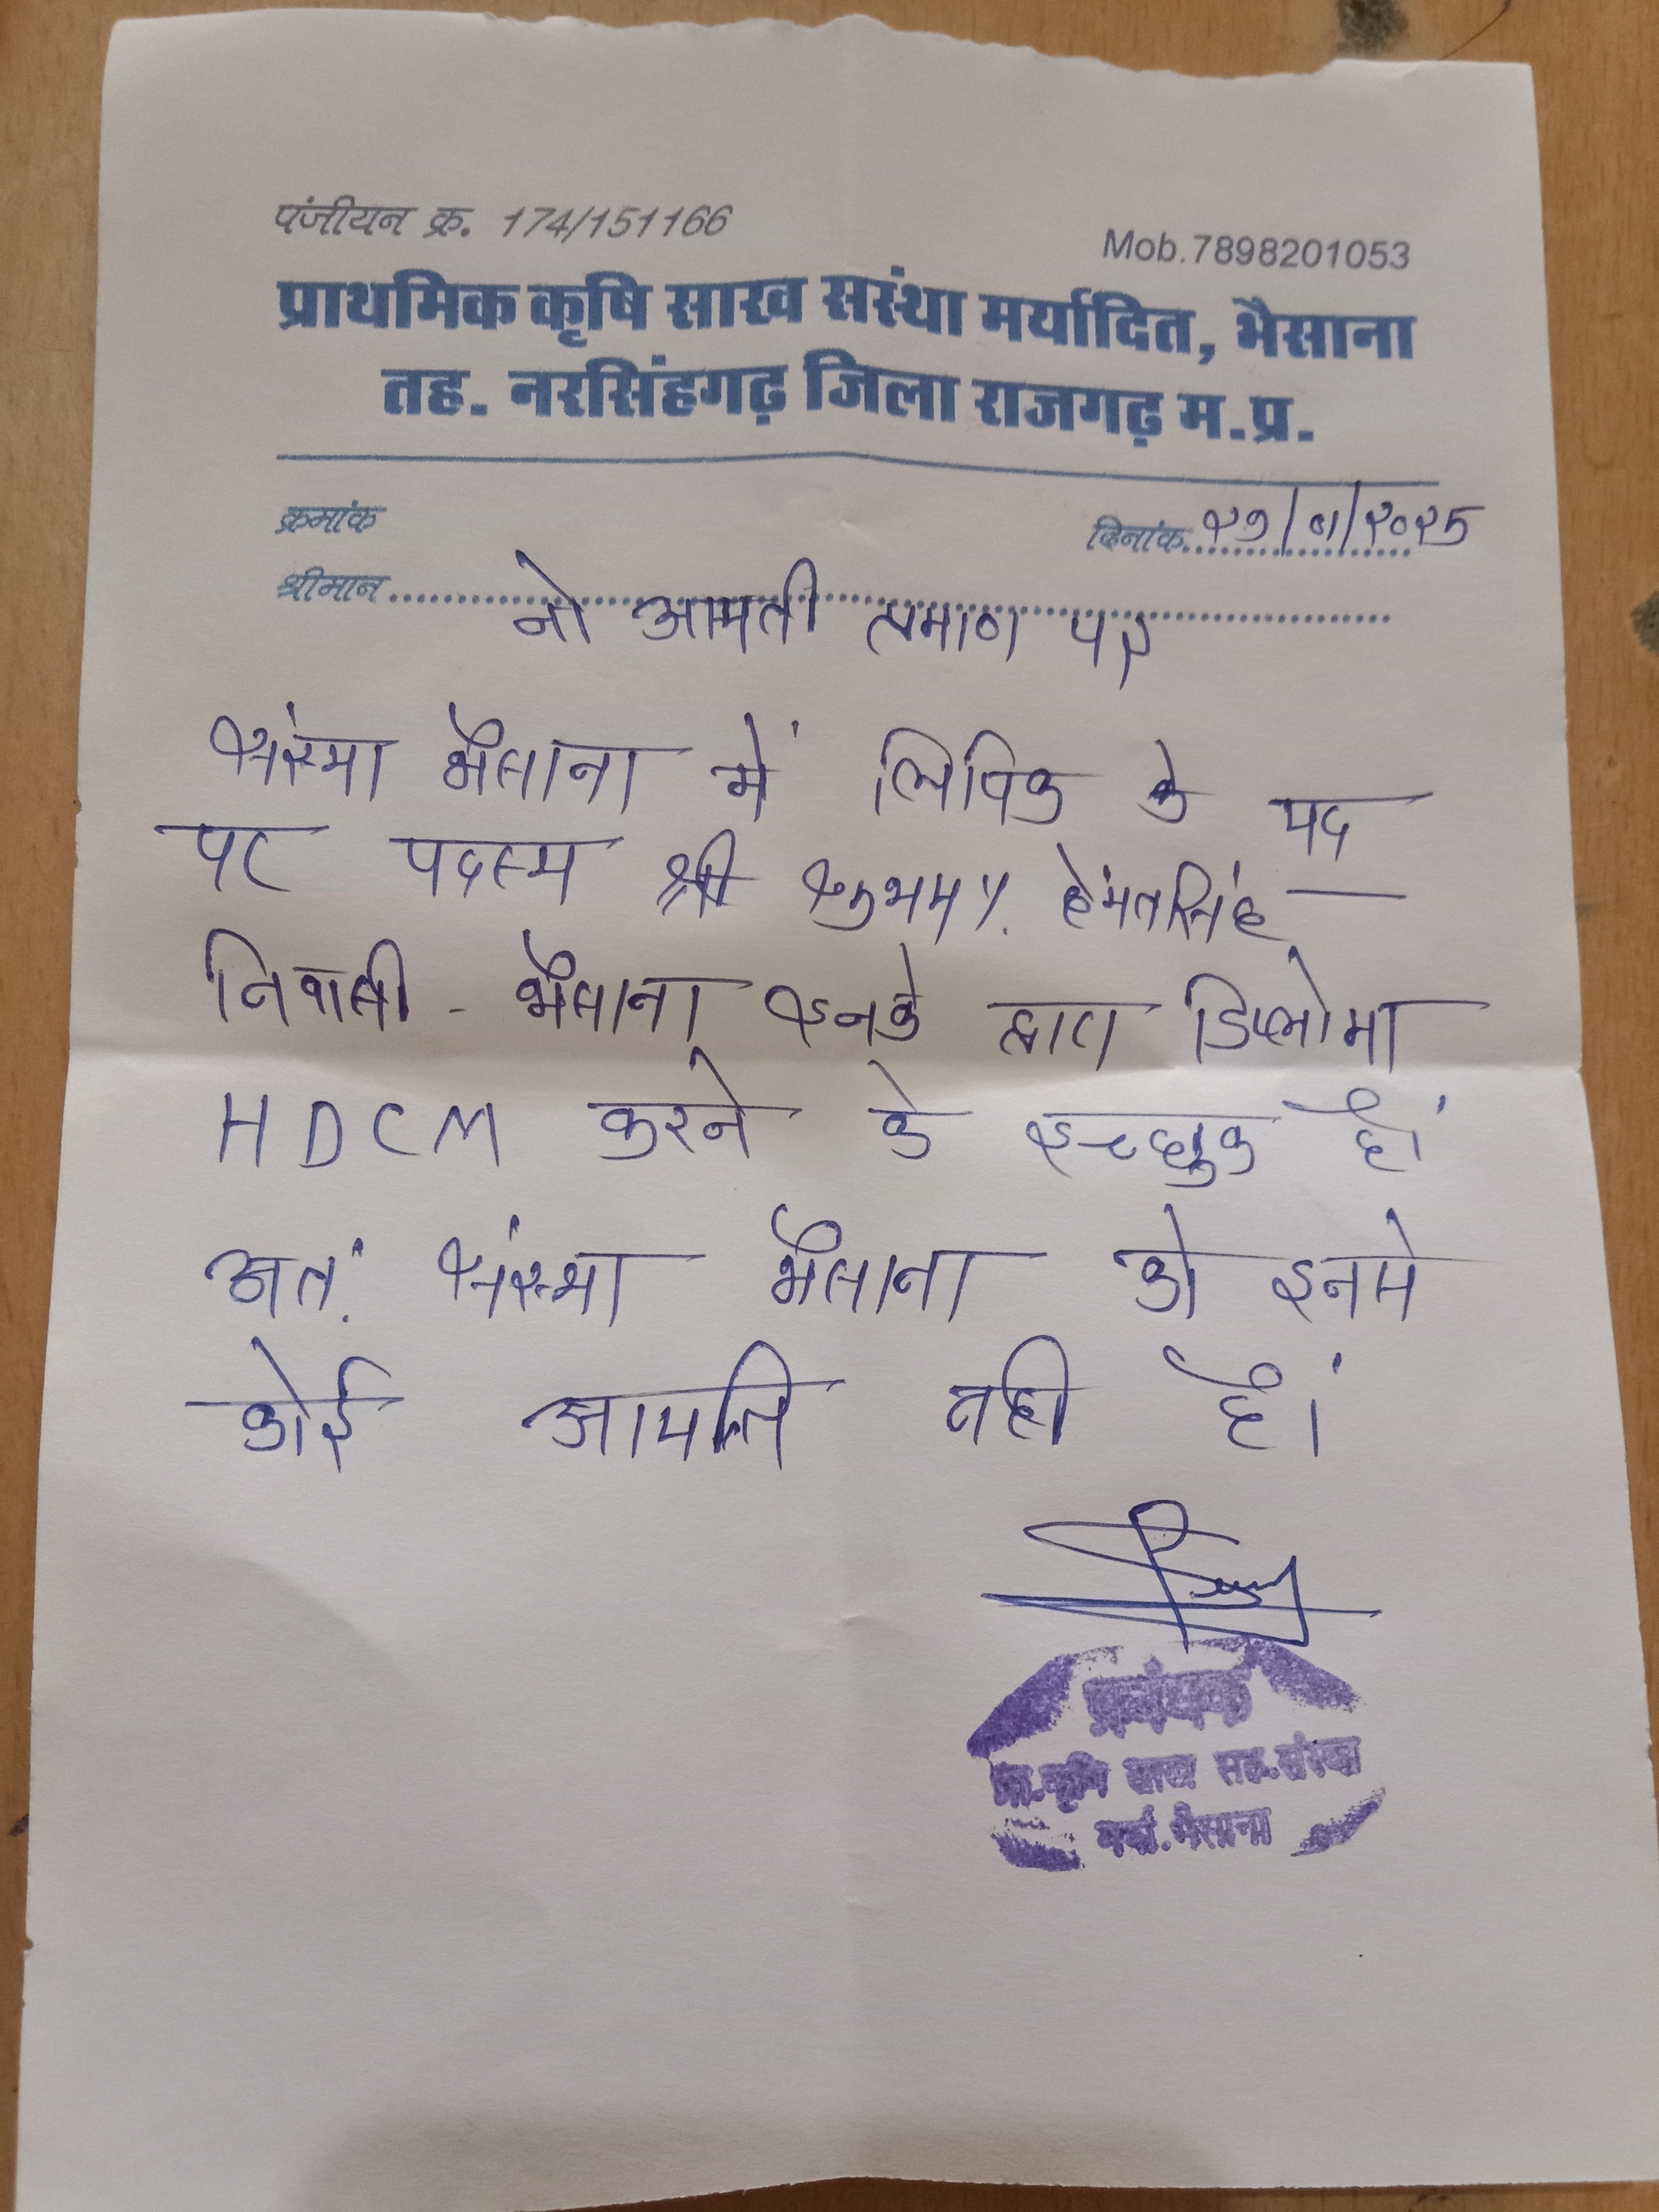 पंजीयन क्र. 174/151166
Mob.7898201053
प्राथमिक कृषि साख सस्ंथा मर्यादित, भैसाना
तह. नरसिंहगढ़ जिला राजगढ़ म.प्र.
क्रमांक
दिनांक. २७/०१/२०२५
श्रीमान
नो आपत्ती प्रमाण पत्र
संस्था भैसाना में लिपिक के पद
पर पदस्थ श्री शुभम S/. हेंमतसिंह
निवासी - भैसाना इनके द्वारा डिप्लोमा
HDCM करने के इच्छुक है।
अत: संस्था भैसाना को इनसे
कोई आपत्ति नही है।
प्रबंधक
प्रा.कृषि साख सह.संस्था
मर्या.भैसाना